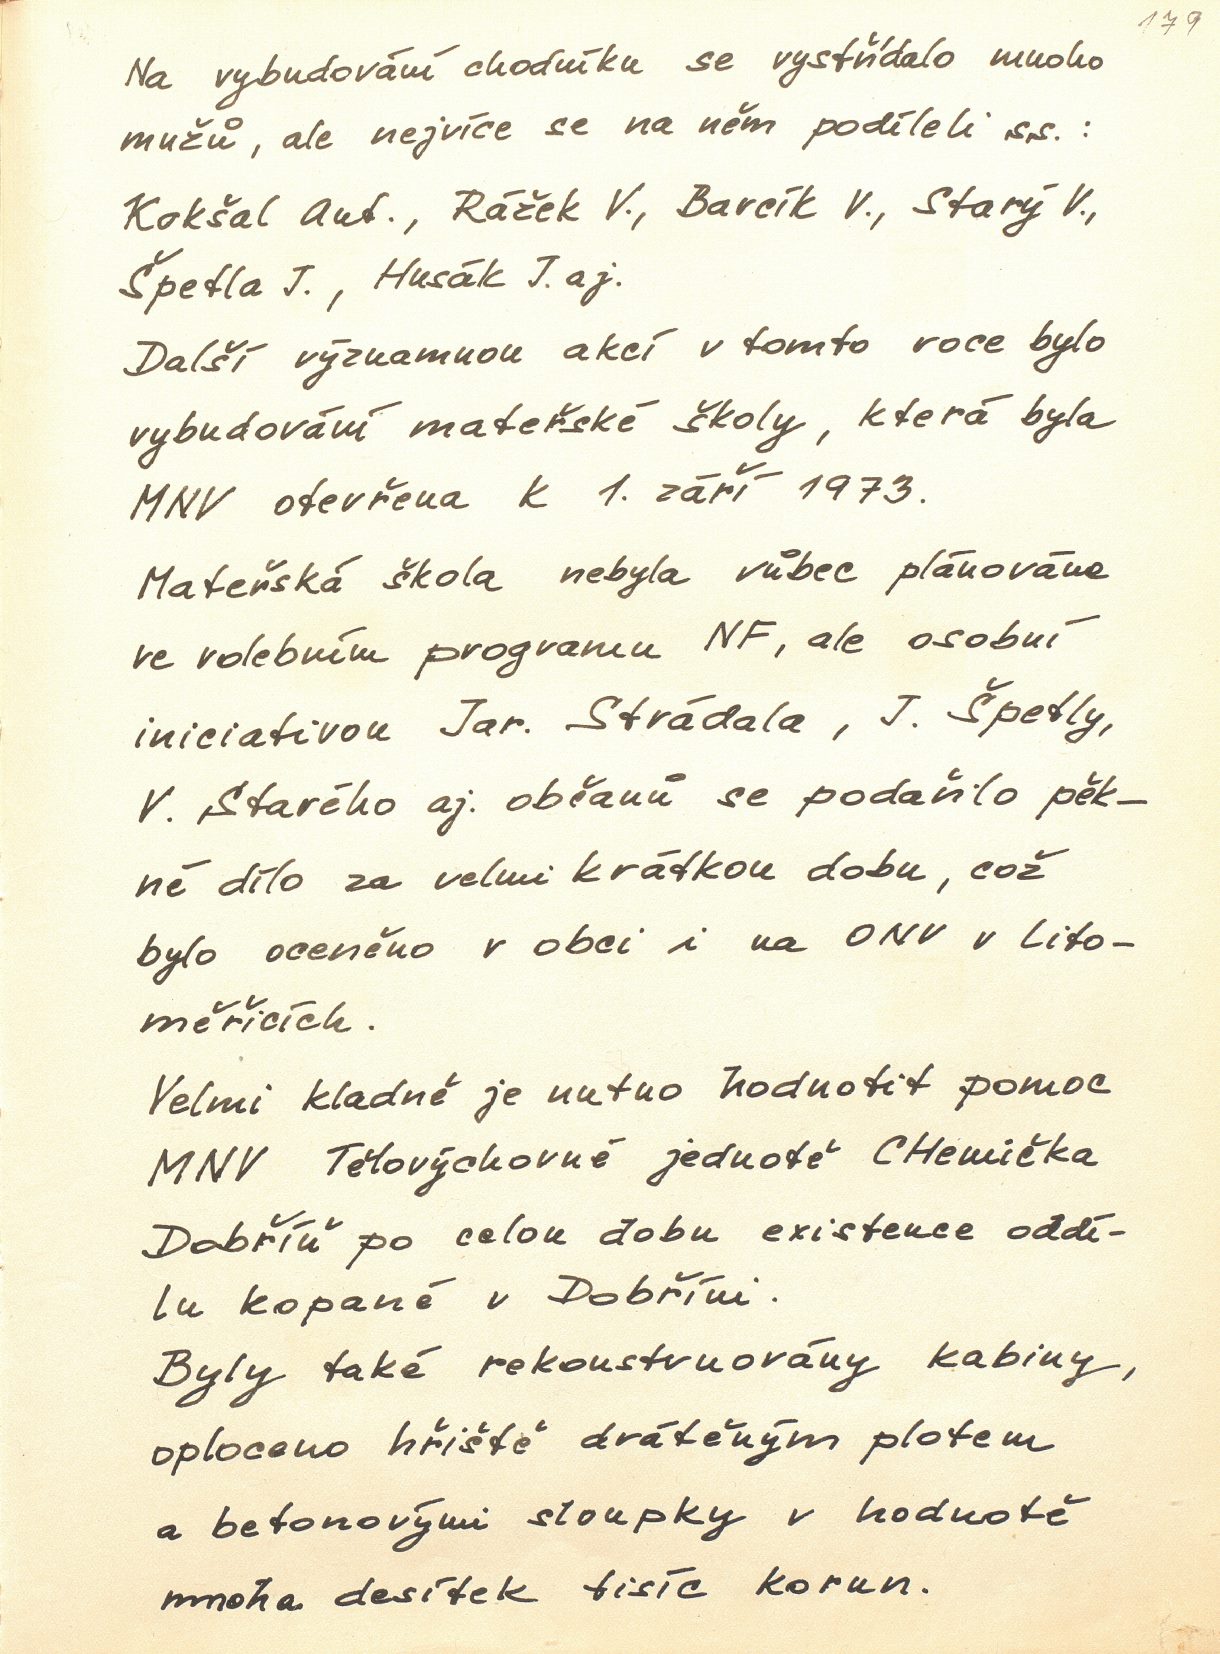 179
Na vybudování chodníku se vystřídalo mnoho
mužů, ale nejvíce se na něm podíleli ss. :
Kokšal Ant., Rážek V., Barcík V., Starý V.,
Špetla J., Husák J. aj.
Další významnou akcí v tomto roce bylo
vybudování mateřské školy, která byla
MNV otevřena k 1. září 1973.
Mateřská škola nebyla vůbec plánována
ve volebním programu NF, ale osobní
iniciativou Jar. Strádala, J. Špetly,
V. Starého aj. občanů se podařilo pěk-
né dílo za velmi krátkou dobu, což
bylo oceněno v obci i na ONV v Lito-
měřicích.
Velmi kladně je nutno hodnotit pomoc
MNV Tělovýchovné jednotě CHemička
Dobříň po celou dobu existence oddí-
lu kopané v Dobříni.
Byly také rekonstruovány kabiny,
oploceno hřiště drátěným plotem
a betonovými sloupky v hodnotě
mnoha desítek tisíc korun.